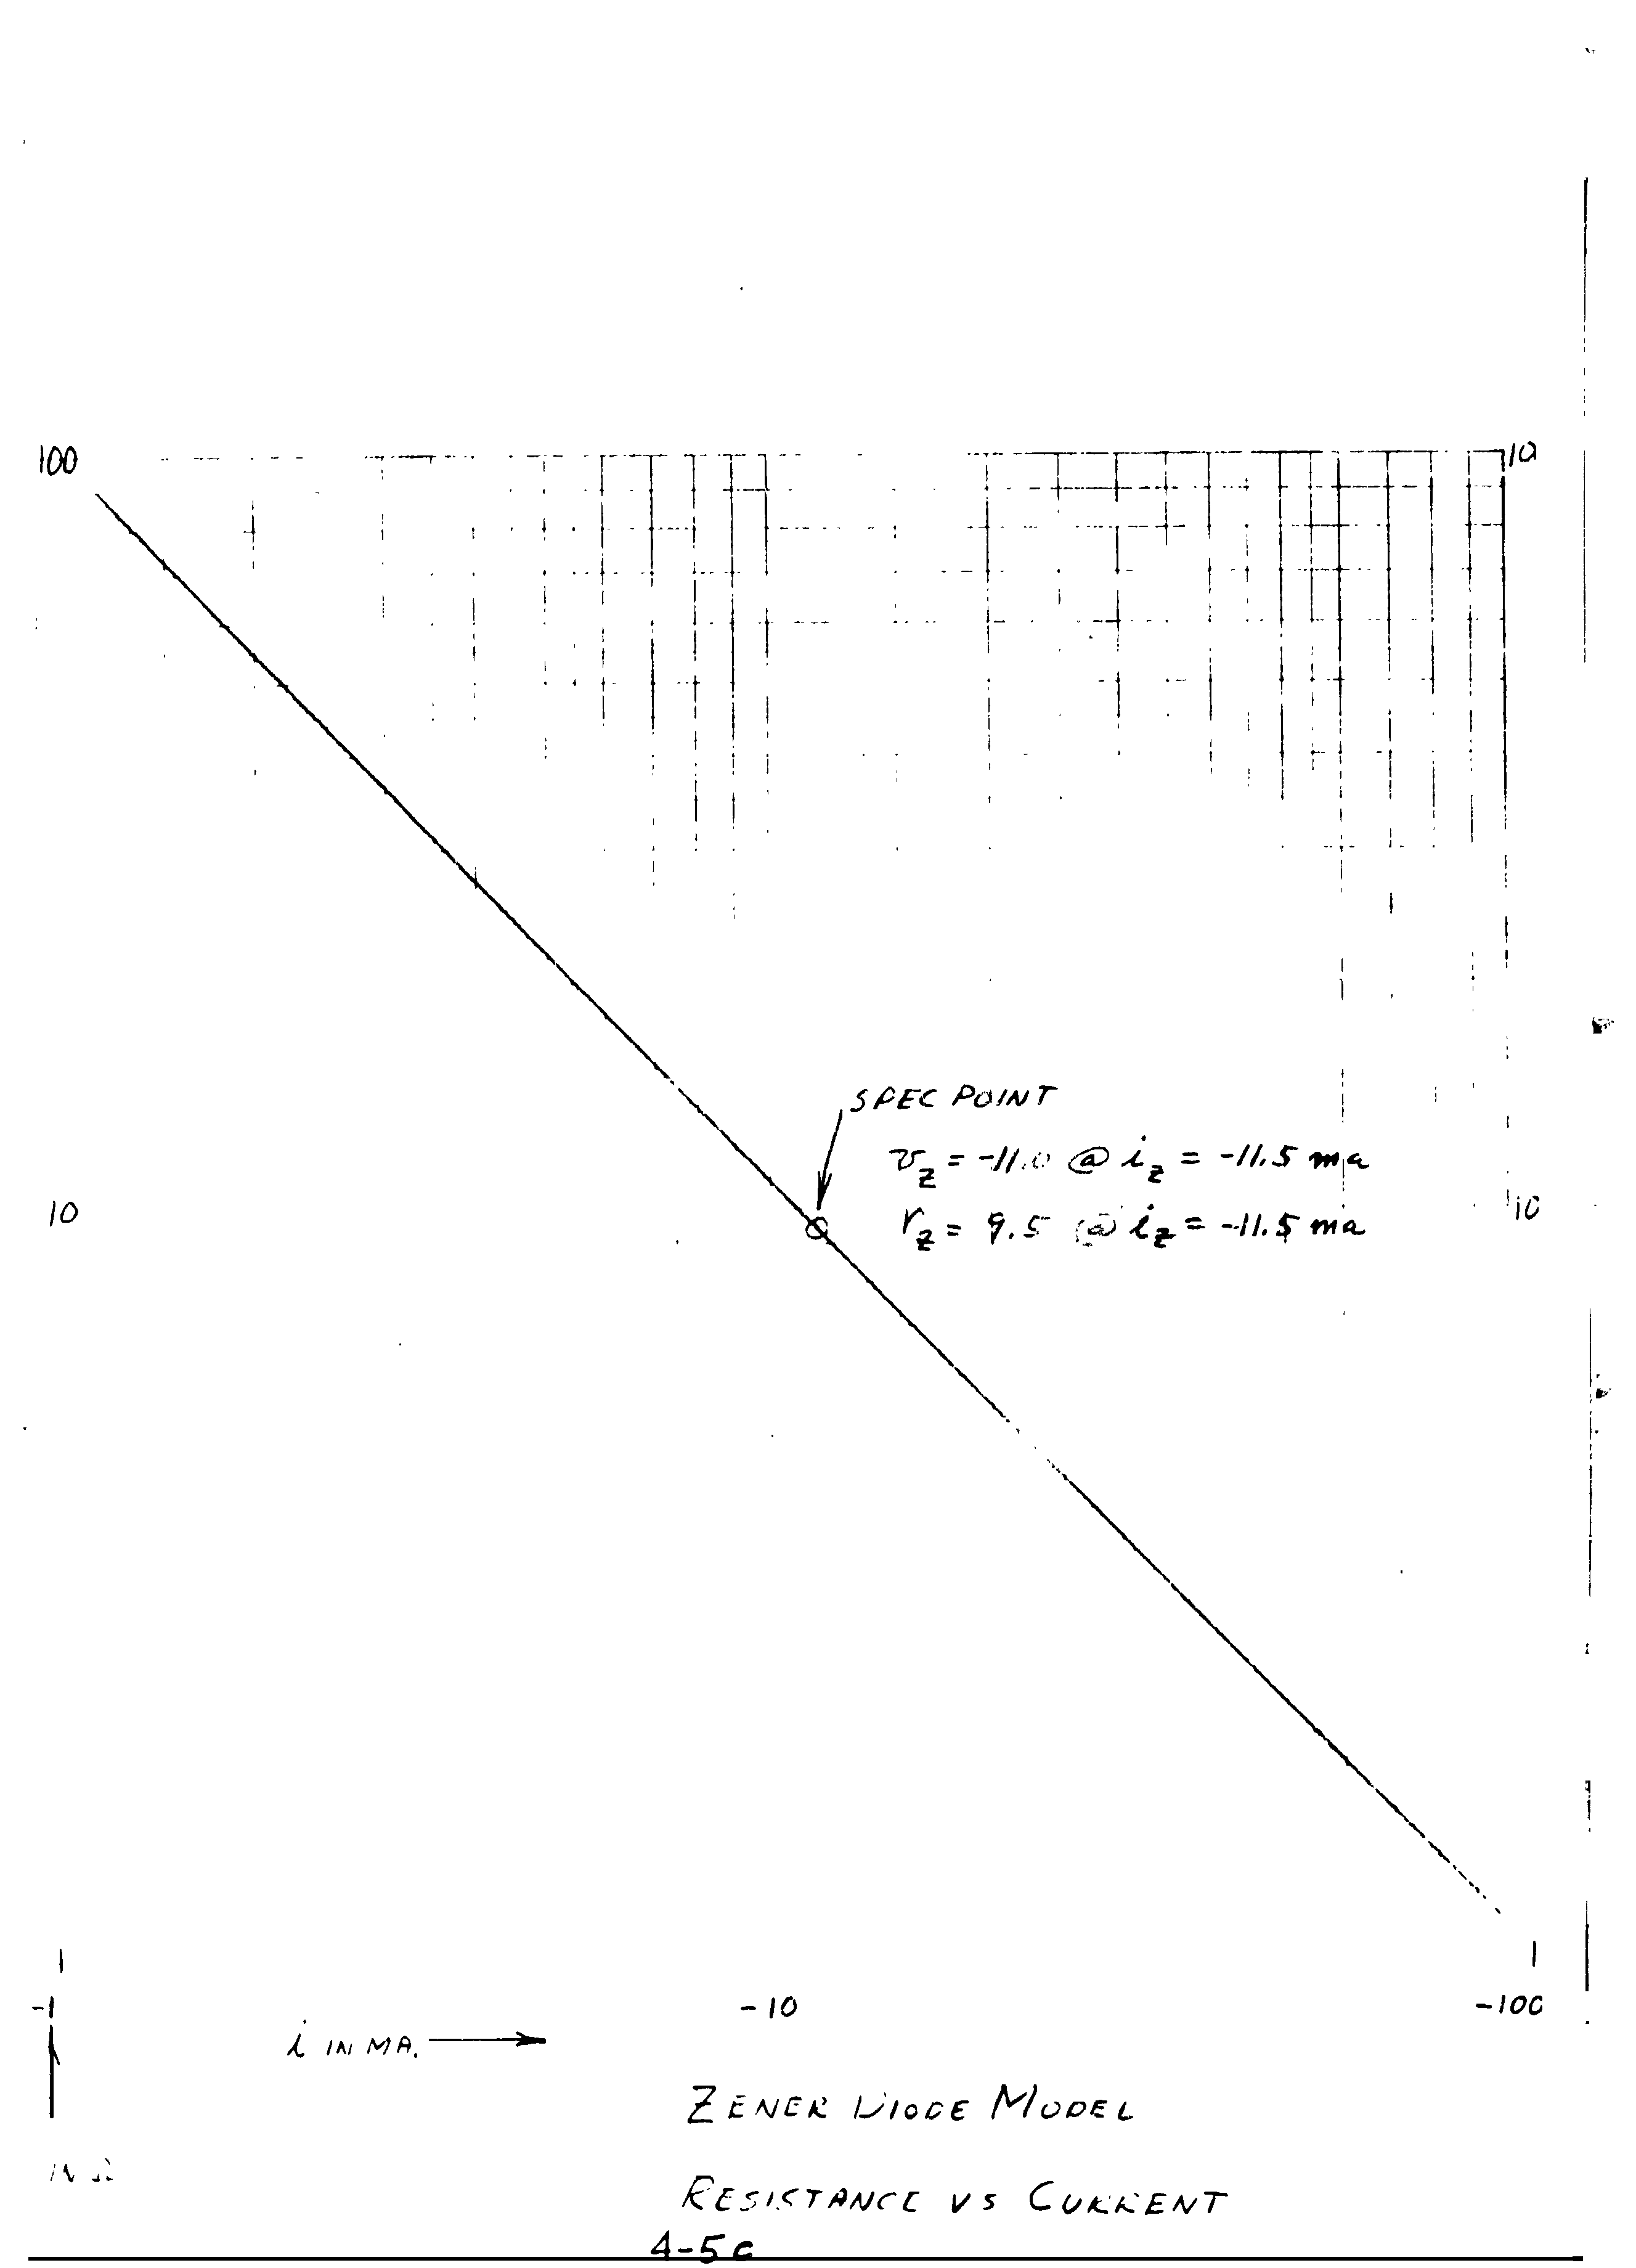 100
10
SPEC POINT
v_z = -11.0 @ i_z = -11.5 ma
r_z = 9.5 @ i_z = -11.5 ma
10
10
1
1
-1
-10
-100
i IN MA.
IN Ω
ZENER DIODE MODEL
RESISTANCE VS CURRENT
4-5c